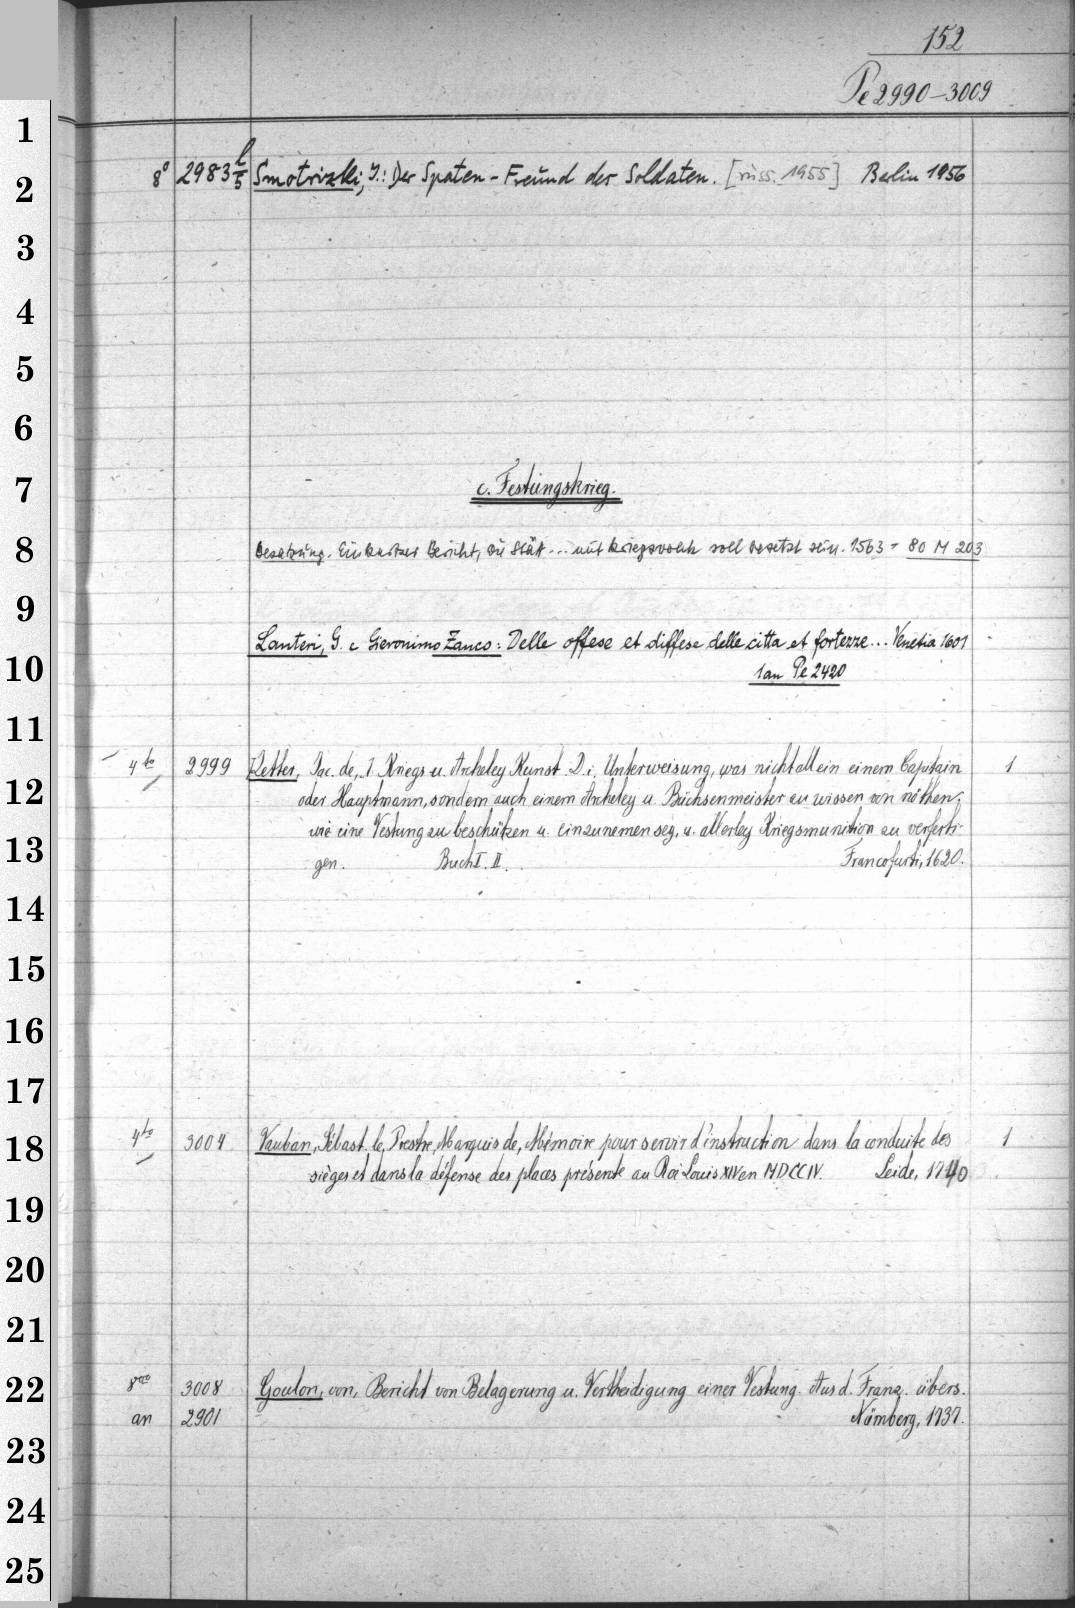 152
Pe 2990-3009
8° 2983 l/5 Smotrizki, J.: Der Spaten-Freund der Soldaten. [russ. 1955] Berlin 1956
c. Festungskrieg.
Besetzung. Ein kurtzer Bericht, wie Stät ... mit kriegsvolck soll besetzt sein. 1563 = 80 M 203
Lanteri, G. e Gieronimo Zanco: Delle offese et diffese delle citta et fortezze... Venetia 1601
1 an Pe 2420
4to 2999 Zetter, Jac. de, Kriegs u. Archeley Kunst. D. i. Unterweisung, was nicht allein einem Capitain 1
oder Hauptmann, sondern auch einem Archeley u. Büchsenmeister zu wissen von nöthen,
wie eine Vestung zu beschützen u. einzunemen sey, u. allerley Kriegsmunition zu verferti-
gen. Buch I. II. Francofurti, 1620.
4to 3004 Vauban, Sébast. le, Prestre, Marquis de, Mémoire pour servir d'instruction dans la conduite des 1
sièges et dans la défense des places présenté au Roi Louis XIV en MDCCIV. Leide, 1740
8vo 3008 Goulon, von, Bericht von Belagerung u. Vertheidigung einer Vestung. Aus d. Franz. übers.
an 2901 Nürnberg, 1737.
1
2
3
4
5
6
7
8
9
10
11
12
13
14
15
16
17
18
19
20
21
22
23
24
25